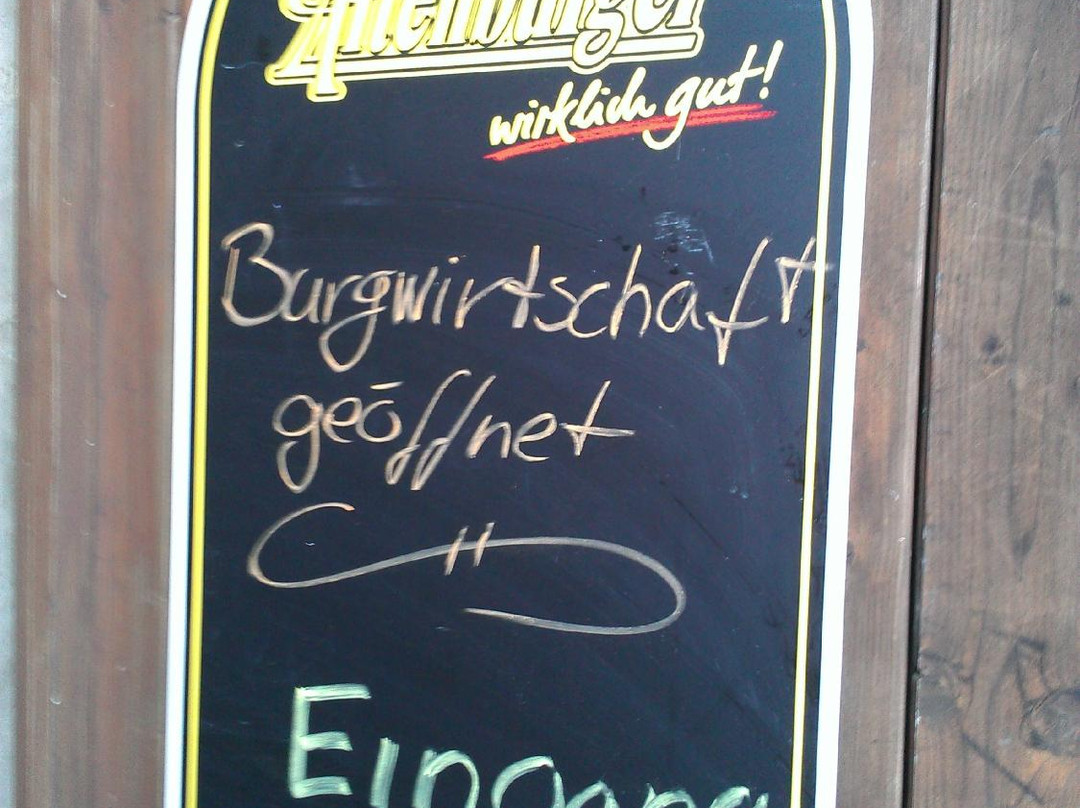 Altenburger
wirklich gut!
Burgwirtschaft
geöffnet
Eingang